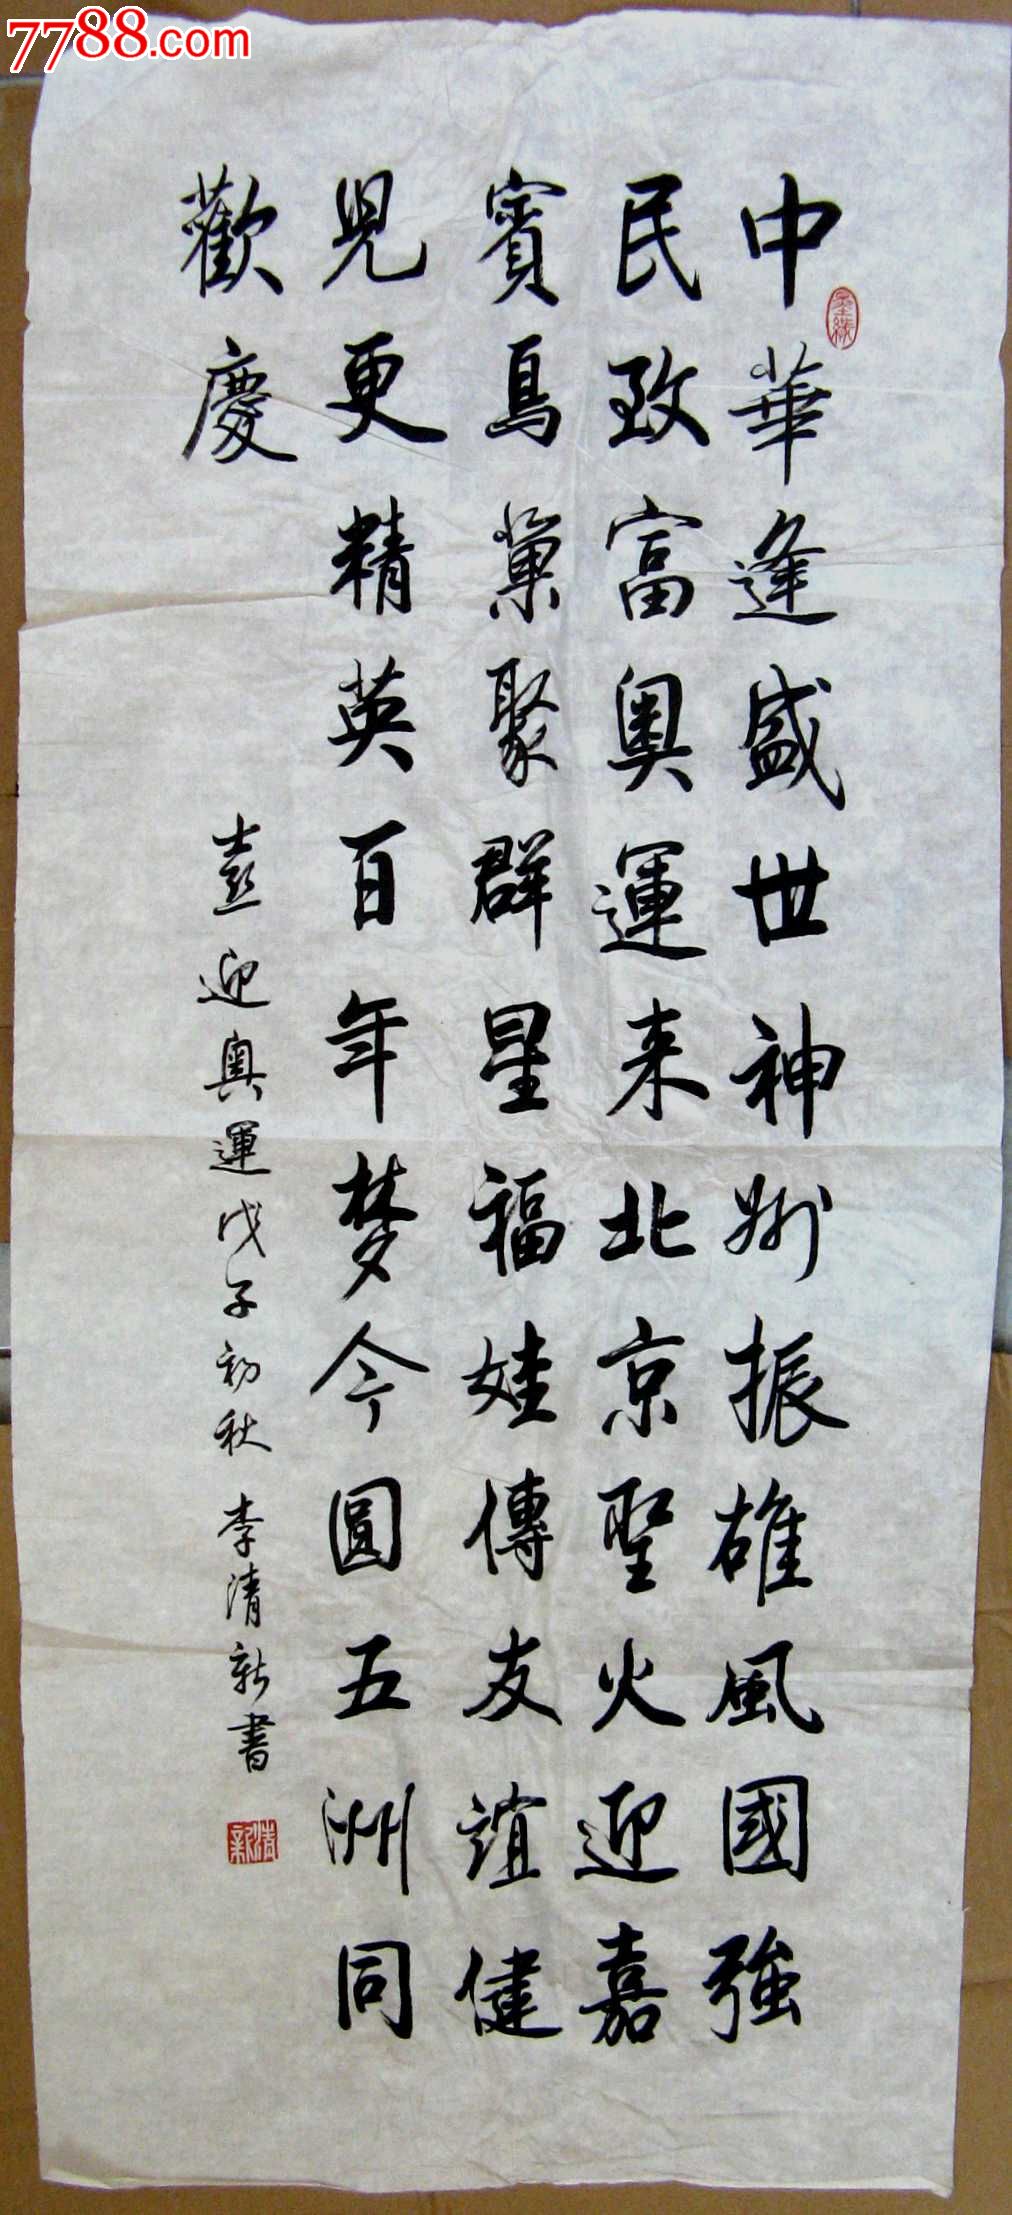 7788.com
中華逢盛世神州振雄風國強
民致富奧運来北京聖火迎嘉
賓鳥巢聚群星福娃傳友誼健
児更精英百年梦今圆五洲同
歡慶
喜迎奥運戊子初秋 李清新書
墨缘
清新